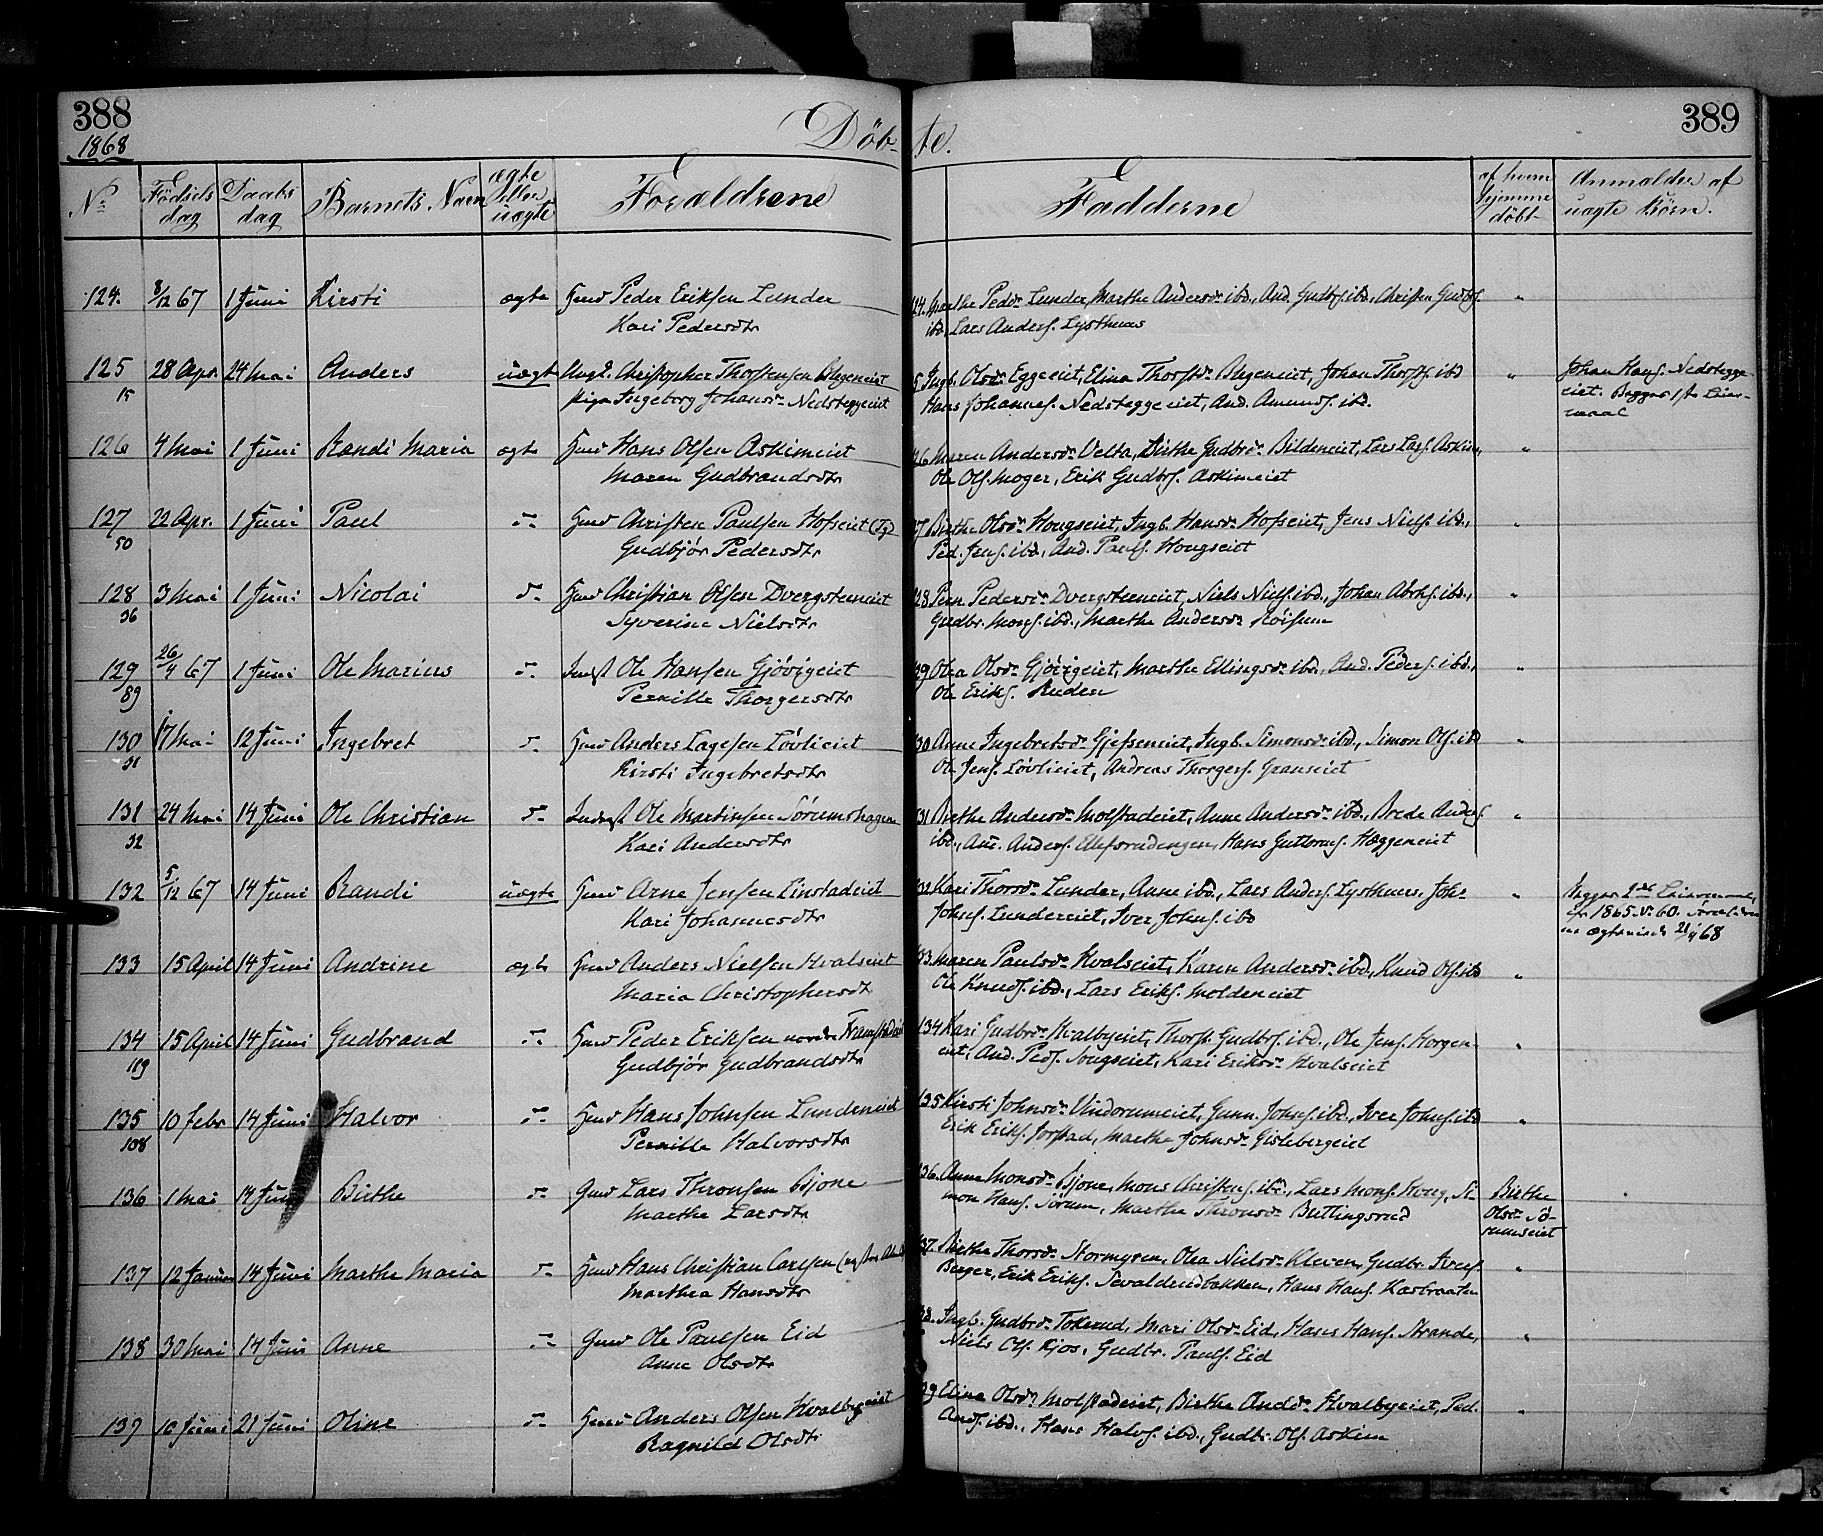 388
1868
Döb-
te.
389
No
Födsels dag
Daabs dag
Barnets Navn
ægte eller uægte
Forældrene
Fadderne
af hvem hjemme döbt
Anmeldn af uægte Börn.
124. 8/12 67 1 Juni Kirsti ægte Huusmd Peder Eriksen Lunder
Kari Pedersdtr
124. Marthe Pedsdr Lunder, Marthe Andersdr ibd., And. Gudbs. ibd., Christen Gudbs.
ibd, Lars Anders. Lysthuus
125 28 Apr. 24 Mai Anders uægt Ungk. Christopher Thorstensen
15 Pige Ingeborg Johansdr Nedreeggeeiet
5 Ingb. Olsdr Eggeeiet, Elina Thorstdr, Johan Thorsts. ibd
Hans Johannes. Nedreeggeeiet, And. Amunds. ibd.
Johan Hans. Nedreegge-
eiet. Begges 1ste Leier-
maal
126 4 Mai 1 Juni Randi Maria ægte Hmd Hans Olsen Askimeiet
Maren Gudbrandsdtr
26 Maren Andersdr Velta, Birthe Gudbrdr Bildeneiet, Lars Lars. Askim,
Ole Ols. Moger, Erik Gudbs. Askimeiet
127 22 Apr. 1 Juni Paul Hmd Christen Paulsen Hofseiet
50 Gudbjör Pedersdtr
27 Birthe Olsdr Hougseiet, Ingb. Hansdr Hofseiet, Jens Niels. ibd.,
Ped. Jens. ibd., And. Pauls. Hougseiet
128 3 Mai 1 Juni Nicolai Hmd Christian Olsen Dvergsteneiet
36 Syverine Nielsdtr
28 Pern. Pedersdr Dvergsteneiet, Niels Niels. ibd., Johan Abrhs. ibd.,
Gudbr. Mons. ibd., Marthe Andersdr Röisum
129 26/4 67 1 Juni Ole Marius Inst Ole Hansen Gjövigeiet
89 Pernille Thorgersdtr
29 Olea Olsdr Gjövigeiet, Marthe Ellingsdr ibd., And. Peders. ibd.,
Ole Eriks. Ruden
130 17 Mai 12 Juni Ingebret Hmd Anders Lagesen Lövlieiet
31 Kirsti Ingebretsdtr
30 Anne Ingebretsdr Gjefseneiet, Ingb. Simonsdr ibd., Simon Ols. ibd
Ole Jens. Lövlieiet, Andreas Thorgers. Graneiet
131 24 Mai 14 Juni Ole Christian Inderst Ole Martinsen Sörumshagen
32 Kari Andersdtr
31 Birthe Andersdr Molstadeiet, Anne Andersdr ibd., Brede Anders.
ibd., And. Anders. Elefsrudengen, Hans Guttorms. Hæggeneiet
132 5/12 67 14 Juni Randi uægte Hmd Arne Jensen Linstadeiet
Kari Johannesdtr
132 Kari Thorsdr Lunder, Anne ibd., Lars Anders. Lysthuus, Joh-
Johs. Lundereiet, Iver Johns. ibd
Begges 2det Leiermaal,
cfr 1865 No 60.
21/4 68
133 15 April 14 Juni Andrine ægte Hmd Anders Nielsen Hvalseiet
Maria Christophersdtr
33. Maren Paulsdr Hvalseiet, Karen Andersdr ibd., Knud Ols. ibd
Ole Knuds. ibd., Lars Eriks. Moldeneiet
134 15 April 14 Juni Gudbrand Hmd Peder Eriksen nordre Framstadeiet
119 Gudbjör Gudbrandsdtr
134 Kari Gudbrdr Hvalbyeiet, Thorst. Gudbs. ibd., Ole Jens. Horgen-
eiet, And. Peds. Sougseiet, Kari Eriksdr Hvalseiet
135 10 Febr 14 Juni Halvor Hmd Hans Johnsen Lundereiet
108 Pernille Halvorsdtr
135 Kirsti Johnsdr Vindorumeiet, Gunn. Johns. ibd., Iver Johns. ibd
Erik Eriks. Jorstad, Marthe Johnsdr Gislebergeiet
136 1 Mai 14 Juni Birthe Gmd Lars Thronsen Bjone
Marthe Larsdtr
136. Anne Monsdr Bjone, Mons Christens. ibd., Lars Mons. Houg, Si-
mon Hans. Sörum, Marthe Thronsdr Buttingsrud
Birthe
Olsdr Sö-
rumseiet
137 12 Januar 14 Juni Marthe Maria Hmd Hans Christian Carlsen
Marthea Hansdtr
37. Birthe Thorsdr Stormyren, Olea Nielsdr Kleven, Gudbr. Ivers.
Berger, Erik Eriks. Sevalderudbakken, Hans Hans. Kasbraaten
138 30 Mai 14 Juni Anne Gmd Ole Paulsen Eid
Anne Olsdtr
38. Ingb. Gudbrdr Tokerud, Mari Olsdr Eid, Hans Hans. Strande,
Niels Ols. Kjos, Gudbr. Pauls. Eid
139 10 Juni 21 Juni Oline Hmd Anders Olsen Hvalbyeiet
Ragnild Olsdtr
39 Eline Olsdr Molstadeiet, Birthe Andsdr Hvalbyeiet, Ped.
Ands. ibd., Hans Halvs. ibd., Gudbr. Ols. Askim